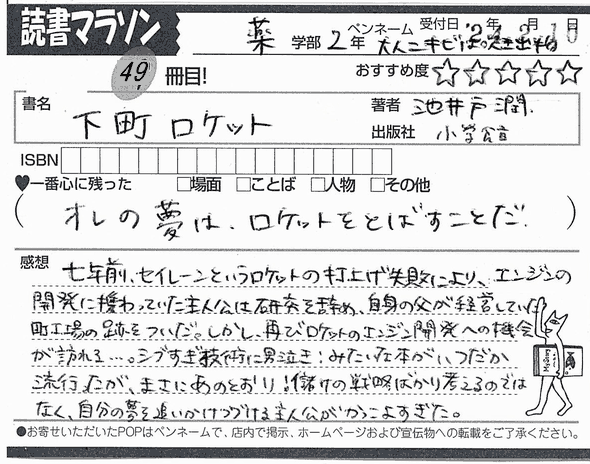 読書マラソン
薬 学部 2年 ペンネーム 大人ニキビは吹き出物 受付日 '24年2月10日
49冊目! おすすめ度 ☆☆☆☆☆
書名 下町ロケット
著者 池井戸潤
出版社 小学館
ISBN
♥一番心に残った □場面 □ことば □人物 □その他
(オレの夢は、ロケットをとばすことだ。)
感想 七年前、セイレーンというロケットの打上げ失敗により、エンジンの
開発に携わっていた主人公は研究を辞め、自身の父が経営していた
町工場の跡をついだ。しかし、再びロケットのエンジン開発への機会
が訪れる…。シブすぎ技術に男泣き!みたいな本がいつだか
流行ったが、まさにあのとおり!儲けの戦略ばかり考えるのでは
なく、自分の夢を追いかけつづける主人公がかっこよすぎた。
●お寄せいただいたPOPはペンネームで、店内で掲示、ホームページおよび宣伝物への転載をご了承ください。